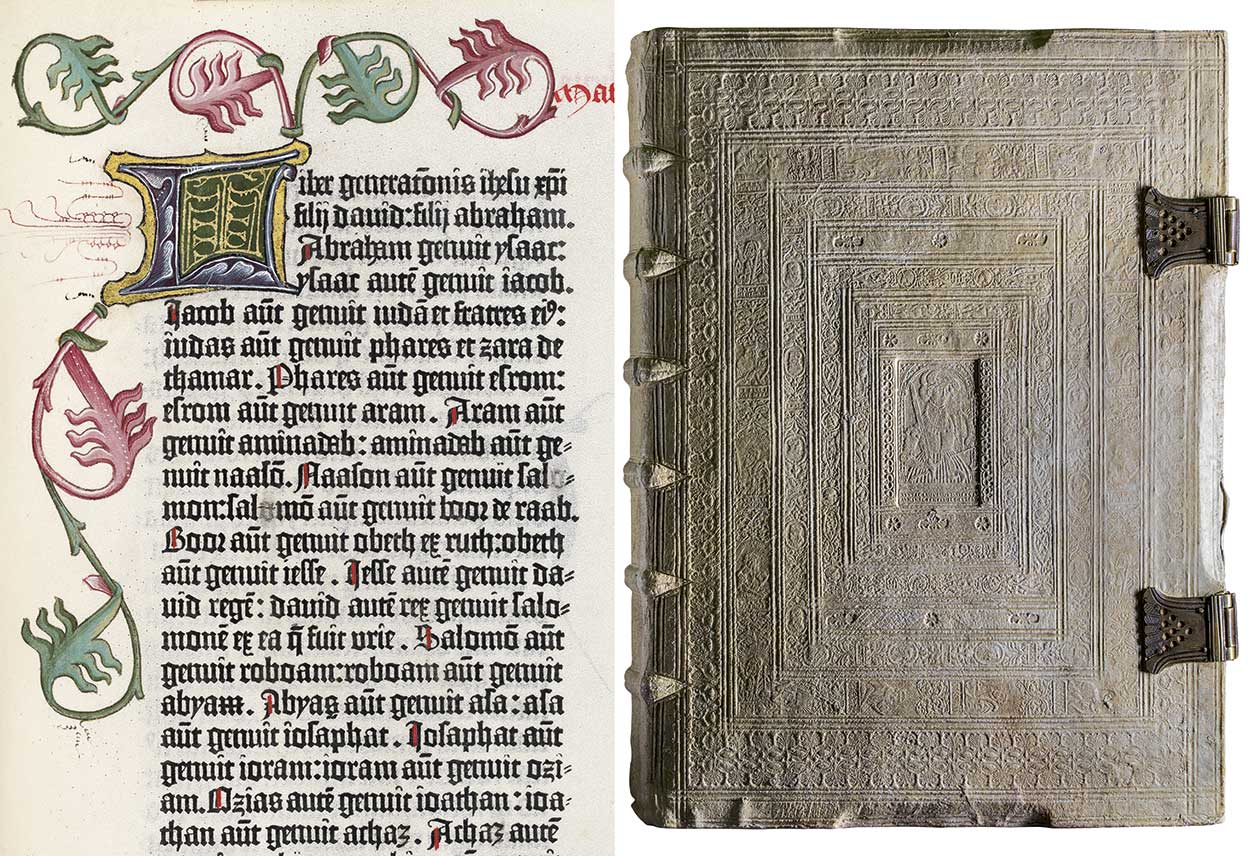 Mat
Liber generatōnis ihesu xp̄i
filij dauid: filij abraham.
Abraham genuit ysaac:
ysaac autē genuit iacob.
Jacob aūt genuit iudā et fratres ei⁹:
iudas aūt genuit phares et zara de
thamar. Phares aūt genuit esrom:
esrom aūt genuit aram. Aram aūt
genuit aminadab: aminadab aūt ge-
nuit naasō. Naason aūt genuit sal
mon: salmō aūt genuit booz de raab.
Booz aūt genuit obeth ex ruth: obeth
aūt genuit iesse. Jesse autē genuit da-
uid regē: dauid autē rex genuit salo-
monē ex ea q̄ fuit vrie. Salomō aūt
genuit roboam: roboam aūt genuit
abyam. Abyas aūt genuit asa: asa
aūt genuit iosaphat. Josaphat aūt
genuit ioram: ioram aūt genuit ozi-
am. Ozias autē genuit ioathan: ioa-
than aūt genuit achaz. Achaz autē